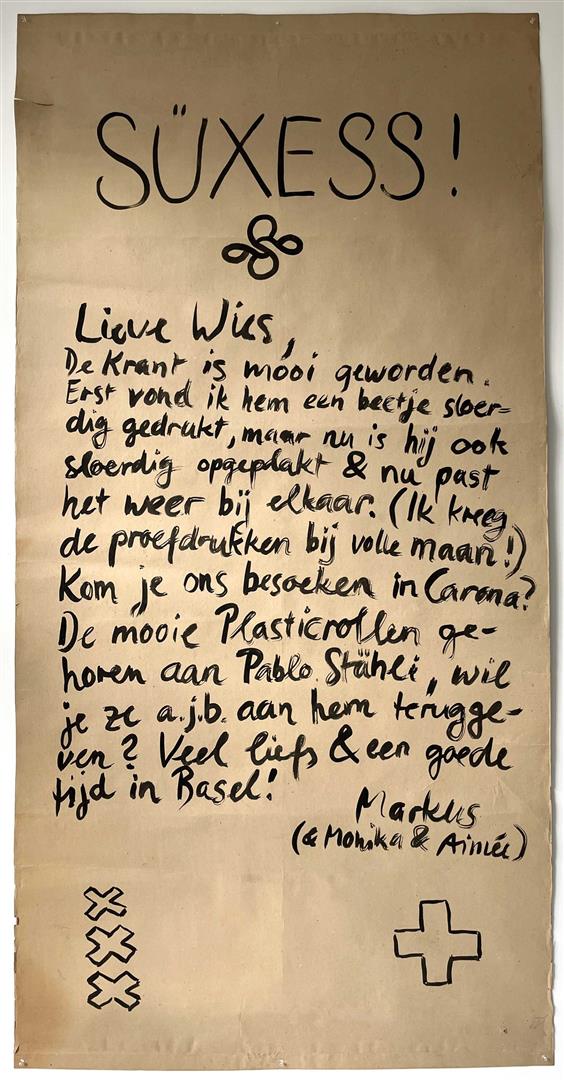 SÜXESS!
Lieve Wies,
De Krant is mooi geworden.
Erst vond ik hem een beetje sloer=
dig gedrukt, maar nu is hij ook
sloerdig opgeplakt & nu past
het weer bij elkaar. (Ik kreeg
de proefdrukken bij volle maan!)
Kom je ons besoeken in Carona?
De mooie Plasticrollen ge-
horen aan Pablo Stähli, wil
je ze a.j.b. aan hem terugge-
ven? Veel liefs & een goede
tijd in Basel!
Markus
(& Monika & Aimée)
XXX